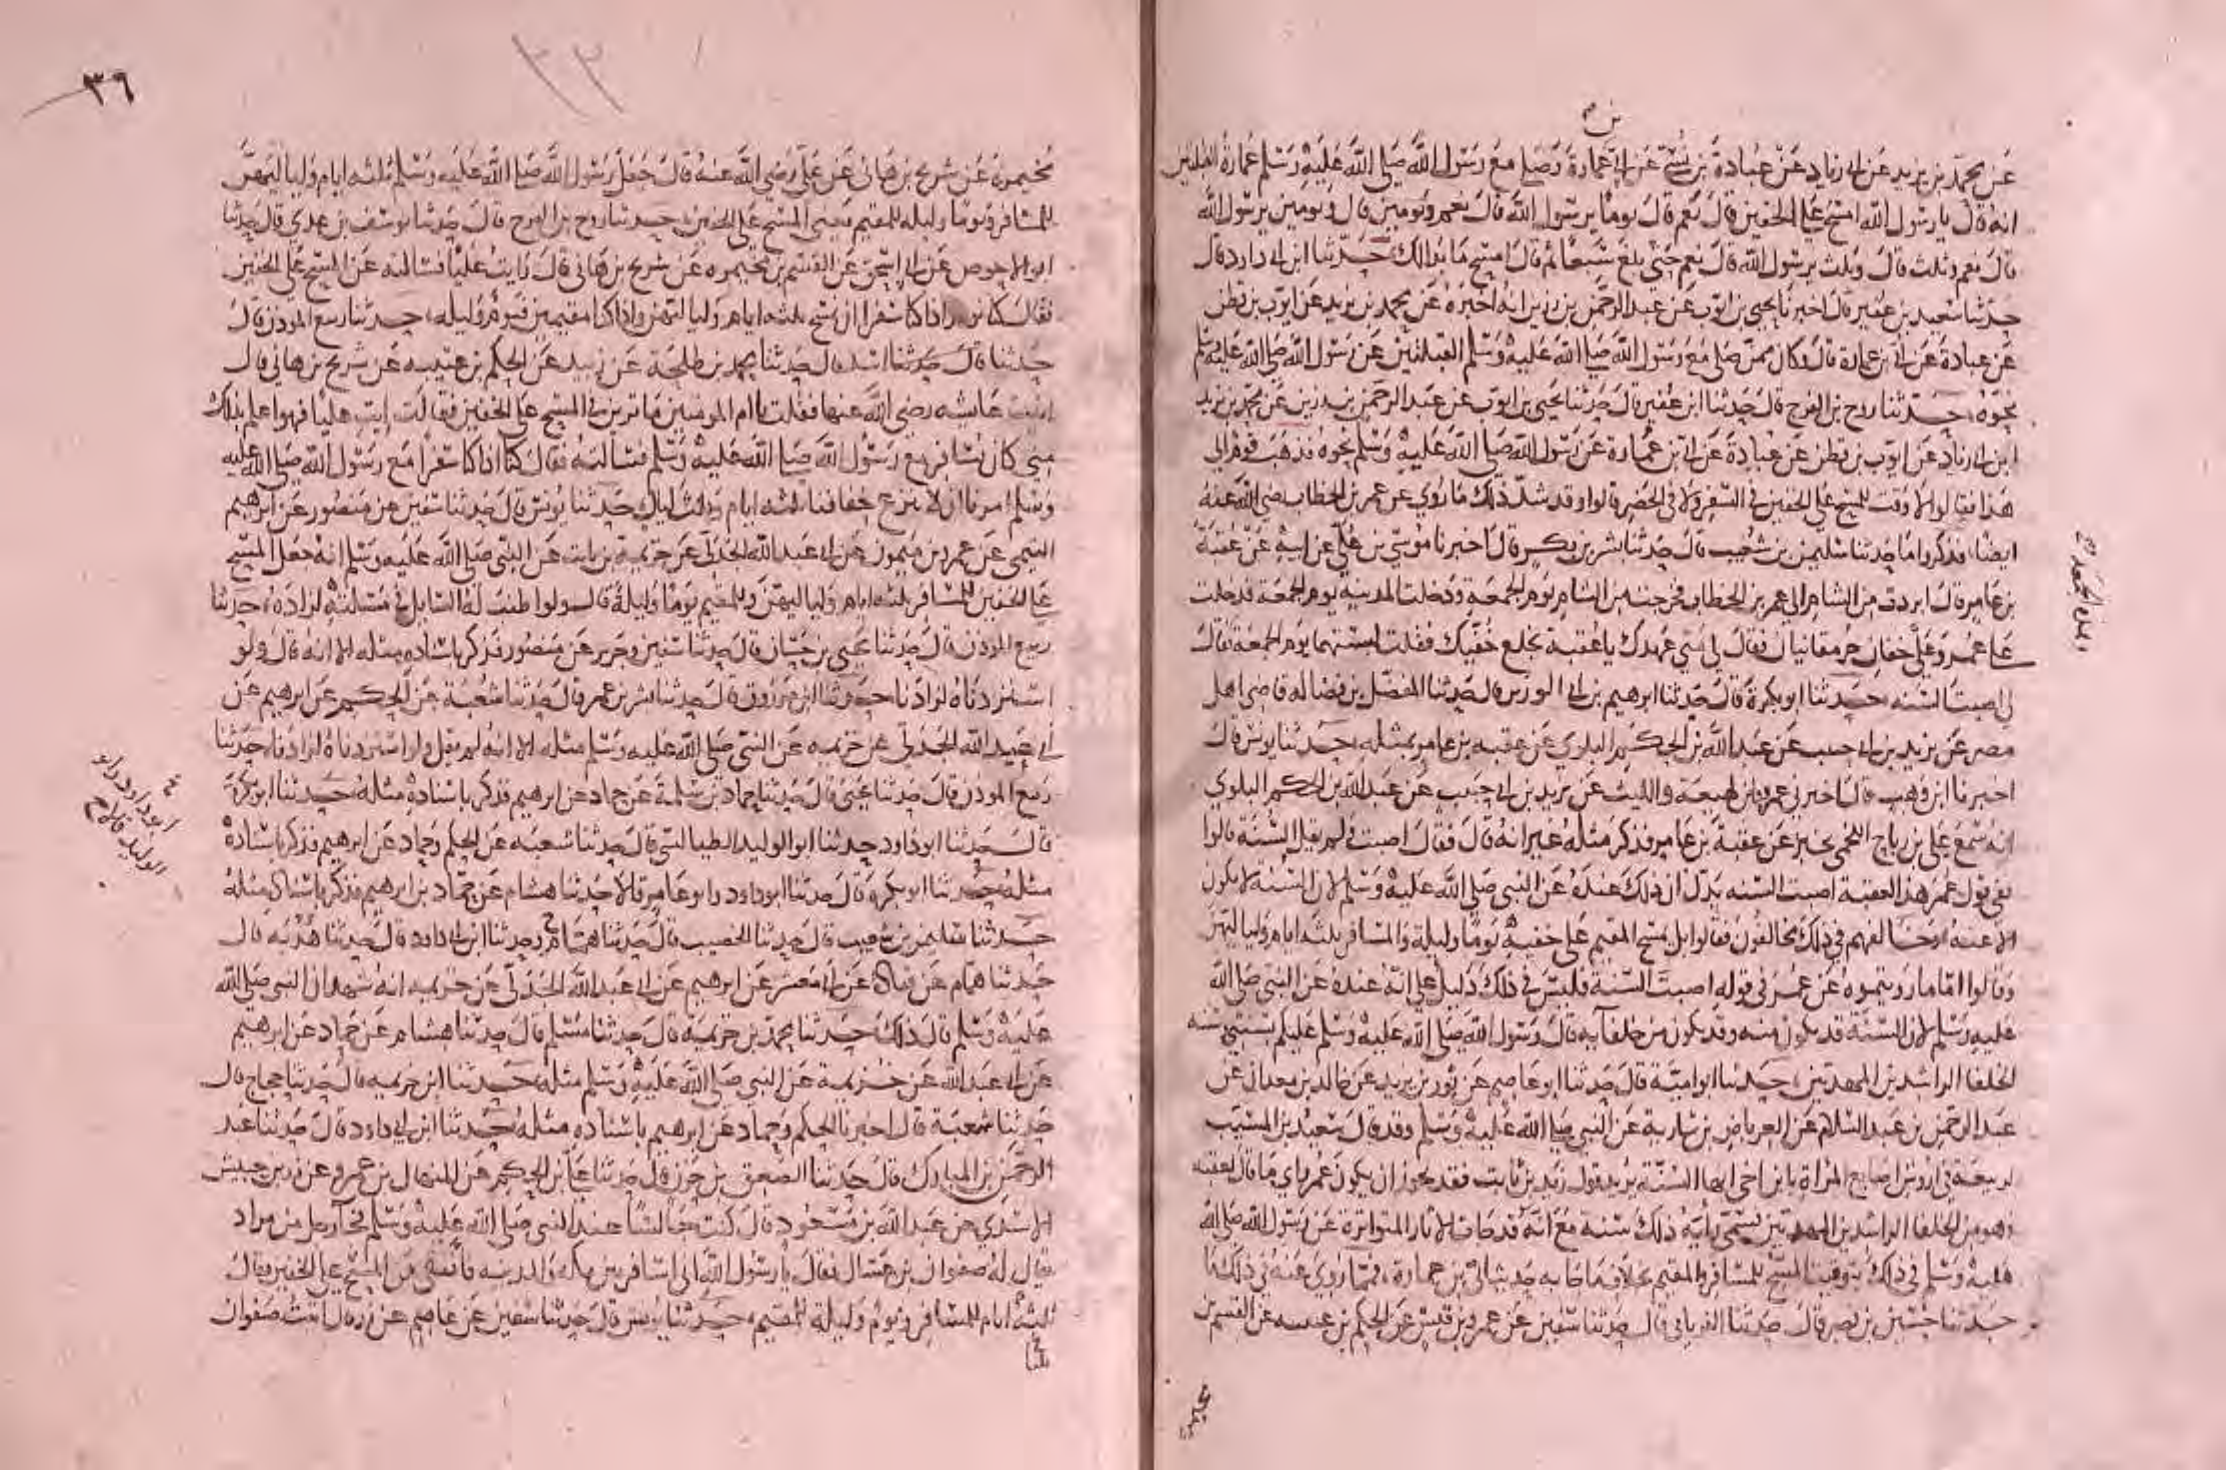 بن صح
عن محمد بن يزيد عن ابي زياد عن عبادة بن نسي عن ابي عمارة وصلى مع رسول الله صلى الله عليه وسلم عمارة القبلتين
انه قال يا رسول الله امسح على الخفين قال نعم قال يوما يرسول الله قال نعم ويومين قال ويومين يرسول الله
قال نعم وثلث قال وثلث يرسول الله قال نعم حتى بلغ سبعا ثم قال امسح ما بدا لك حدثنا ابن ابي داود قال
حدثنا سعيد بن عفير قال اخبرنا يحيى بن ايوب عن عبد الرحمن بن رزين انه اخبره عن محمد بن يزيد عن ايوب بن قطن
عن عبادة عن ابي بن عمارة قال وكان ممن صلى مع رسول الله صلى الله عليه وسلم القبلتين عن رسول الله صلى الله عليه وسلم
نحوه حدثنا روح بن الفرج قال حدثنا ابن عفير قال حدثنا يحيى بن ايوب عن عبد الرحمن بن رزين عن محمد بن يزيد
ابن ابي زياد عن ايوب بن قطن عن عبادة عن ابي بن عمارة عن رسول الله صلى الله عليه وسلم نحوه فذهب قوم الى
هذا فقالوا لا وقت للمسح على الخفين في السفر ولا في الحضر قالوا وقد شد ذلك ما روي عن عمر بن الخطاب رضي الله عنه
ايضا فذكروا ما حدثنا سليمن بن شعيب قال حدثنا بشر بن بكر قال اخبرنا موسى بن علي عن ابيه عن عقبة
بن عامر قال ابردت من الشام الى عمر بن الخطاب فخرجت من الشام يوم الجمعة ودخلت المدينة يوم الجمعة فدخلت
على عمر وعلي خفان جرمقانيان فقال لي متى عهدك يا عقبة بخلع خفيك فقلت لبستهما يوم الجمعة فقال
لي اصبت السنه حدثنا ابو بكرة قال حدثنا ابرهيم بن ابي الوزير قال حدثنا المفضل بن فضاله قاضي اهل
مصر عن يزيد بن ابي حبيب عن عبد الله بن الحكم البلوي عن عقبه بن عامر بمثله حدثنا يونس قال
اخبرنا ابن وهب قال اخبرني عمرو وابن لهيعة والليث عن يزيد بن ابي حبيب عن عبد الله بن الحكم البلوي
انه سمع علي بن رباح اللخمي يخبر عن عقبة بن عامر فذكر مثله غير انه قال فقال اصبت ولم يقل السنة قالوا
ففي قول عمر هذا لعقبة اصبت السنه يدل ان ذلك عنده عن النبي صلى الله عليه وسلم لان السنه لا يكون
الا عنه وخالفهم في ذلك مخالفون فقالوا بل يمسح المقيم على خفيه يوما وليلة والمسافر ثلثة ايام ولياليهن
وقالوا اما ما رويتموه عن عمر في قوله اصبت السنة فليس في ذلك دليل على انه عنده عن النبي صلى الله
عليه وسلم لان السنة قد يكون منه وقد يكون من خلفآيه قال رسول الله صلى الله عليه وسلم عليكم بسنتي وسنه
الخلفا الراشدين المهديين حدثنا ابو امية قال حدثنا ابو عاصم عن ثور بن يزيد عن خالد بن معدان عن
عبد الرحمن بن عبد السلام عن العرباض بن سارية عن النبي صلى الله عليه وسلم وقد قال سعيد بن المسيب
لربيعة في اروش اصابع المراة يا بن اخي انها السنة يريد قول زيد بن ثابت فقد يجوز ان يكون عمر راي ما قال لعقبه
وهو من الخلفا الراشدين المهديين يسمى رأيه ذلك سنة مع انه قد جات الاثار المتواترة عن رسول الله صلى الله
عليه وسلم في ذلك بتوقيت المسح للمسافر والمقيم بخلاف ما جا به حديث ابي بن عمارة فمما روي عنه في ذلك ما
حدثنا حسين بن نصر قال حدثنا الفريابي قال حدثنا سفين عن عمرو بن قيس عن الحكم بن عتيبه عن القسم بن
٣٦
٣٣
مخيمرة عن شريح بن هاني عن علي رضي الله عنه قال جعل رسول الله صلى الله عليه وسلم ثلثه ايام ولياليهن
للمسافر ويوما وليله للمقيم يعني المسح على الخفين حدثنا روح بن الفرج قال حدثنا يوسف بن عدي قال حدثنا
ابو الاحوص عن ابي اسحق عن القسم بن مخيمره عن شريح بن هاني قال رايت عليا فسالته عن المسح على الخفين
فقال كنا نومر اذا كنا سفرا ان نمسح ثلثه ايام ولياليهن واذا كنا مقيمين فيوم وليله حدثنا ربيع المؤذن قال
حدثنا قال حدثنا اسد قال حدثنا محمد بن طلحة عن زبيد عن الحكم بن عتيبه عن شريح بن هاني قال
اتيت عايشه رضي الله عنها فقلت يا ام المومنين ما ترين في المسح على الخفين فقالت ايت عليا فهو اعلم بذلك
مني كان يسافر مع رسول الله صلى الله عليه وسلم فسالته فقال كنا اذا كنا سفرا مع رسول الله صلى الله عليه
وسلم امرنا ان لا ننزع خفافنا ثلثه ايام وثلث ليال حدثنا يونس قال حدثنا سفين عن منصور عن ابرهيم
التيمي عن عمرو بن ميمون عن ابي عبد الله الجدلي عن خزيمة بن ثابت عن النبي صلى الله عليه وسلم انه جعل المسح
على الخفين للمسافر ثلثه ايام ولياليهن وللمقيم يوما وليلة قال ولو اطنب له السايل في مسالته لزاده حدثنا
ربيع المؤذن قال حدثنا يحيى بن حسان قال حدثنا سفين وجرير عن منصور فذكر باسناده مثله الا انه قال ولو
استزدناه لزادنا حدثنا ابن مرزوق قال حدثنا بشر بن عمر قال حدثنا شعبة عن الحكم عن ابرهيم عن
ابي عبد الله الجدلي عن خزيمه عن النبي صلى الله عليه وسلم مثله الا انه لم يقل ولو استزدناه لزادنا حدثنا
ربيع المؤذن قال حدثنا يحيى قال حدثنا حماد بن سلمة عن حماد عن ابرهيم فذكر باسناده مثله حدثنا ابو بكرة
قال حدثنا ابو داود حدثنا ابو الوليد الطيالسي قال حدثنا شعبه عن الحكم وحماد عن ابرهيم فذكر باسناده
مثله حدثنا ابو بكرة قال حدثنا ابو داود وابو عامر قالا حدثنا هشام عن حماد بن ابرهيم فذكر باسناده مثله
حدثنا سليمن بن شعيب قال حدثنا الخصيب قال حدثنا همام ح وحدثنا ابن ابي داود قال حدثنا هدبه قال
حدثنا همام عن قتادة عن ابي معشر عن ابرهيم عن ابي عبد الله الجدلي عن خزيمه انه شهد ان النبي صلى الله
عليه وسلم قال ذلك حدثنا محمد بن خزيمة قال حدثنا مسلم قال حدثنا هشام عن حماد عن ابرهيم
عن ابي عبد الله عن خزيمة عن النبي صلى الله عليه وسلم مثله حدثنا ابن خزيمه قال حدثنا حجاج قال
حدثنا شعبة قال اخبرنا الحكم وحماد عن ابرهيم باسناده مثله حدثنا ابن ابي داود قال حدثنا عبد
الرحمن بن المبارك قال حدثنا الصعق بن حزن قال حدثنا علي بن الحكم عن المنهال بن عمرو عن زر بن حبيش
الاسدي عن عبد الله بن مسعود قال كنت جالسا عند النبي صلى الله عليه وسلم فجآ رجل من مراد
يقال له صفوان بن عسال فقال يا رسول الله اني اسافر بين مكه والمدينه فأفتني عن المسح على الخفين فقال
ثلثة ايام للمسافر ويوم وليلة للمقيم حدثنا يونس قال حدثنا سفين عن عاصم عن زر قال اتيت صفوان
ابو داود وابو
الوليد قالا